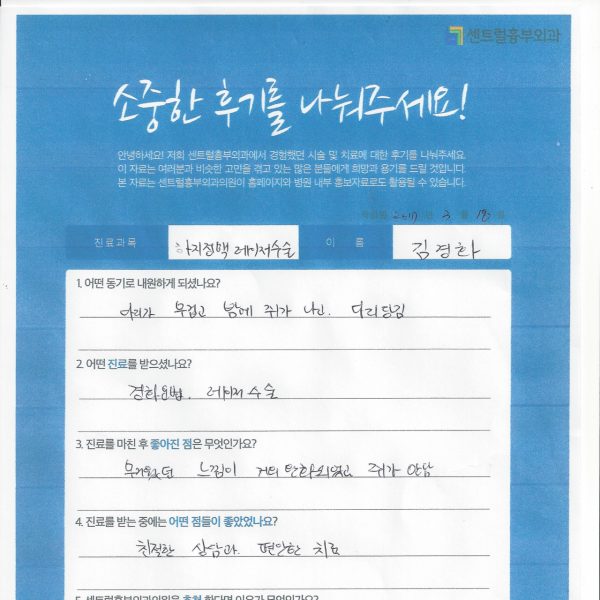 센트럴흉부외과
소중한 후기를 나눠주세요!
안녕하세요! 저희 센트럴흉부외과에서 경험했던 시술 및 치료에 대한 후기를 나눠주세요.
이 자료는 여러분과 비슷한 고민을 겪고 있는 많은 분들에게 희망과 용기를 드릴 것입니다.
본 자료는 센트럴흉부외과의원이 홈페이지와 병원 내부 홍보자료로도 활용될 수 있습니다.
2017 년 3 월 18 일
진료과목 하지정맥 레이저수술 이 름 김경화
1. 어떤 동기로 내원하게 되셨나요?
다리가 무겁고 밤에 쥐가 나고. 다리당김
2. 어떤 진료를 받으셨나요?
경화요법. 레이저 수술
3. 진료를 마친 후 좋아진 점은 무엇인가요?
무거웠던 느낌이 거의 완화되었고 쥐가 안남
4. 진료를 받는 중에는 어떤 점들이 좋았었나요?
친절한 상담과. 편안한 치료
5. 센트럴흉부외과의원을 추천 한다면 이유가 무엇인가요?